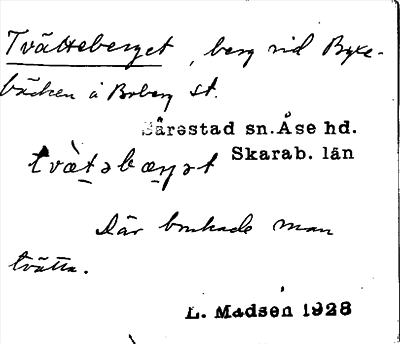 Tvätteberget, berg vid Byke-
bäcken å Boberg st.
Särestad sn. Åse hd.
Skarab. län
tvæ̀təbæŋət
Där brukade man
tvätta.
L. Madsen 1928